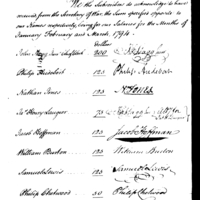 We the Subscribers do acknowledge to have
received from the Secretary of War, the Sums opposite
our Names respectively, being for our Salaries for the Months of
January February and March, 1794.
Dollars
John Stagg Junr Chief Clerk 200 Jno Stagg Junr
Philip Audebert 125 Philip Audebert
Nathan Jones 125 N. Jones
Sr Henry 75
Jacob Hoffman 125 Jacob Hoffman
William Barton 125 William Barton
Samuel Lewis 125 Samuel Lewis
Philip 50 Philip